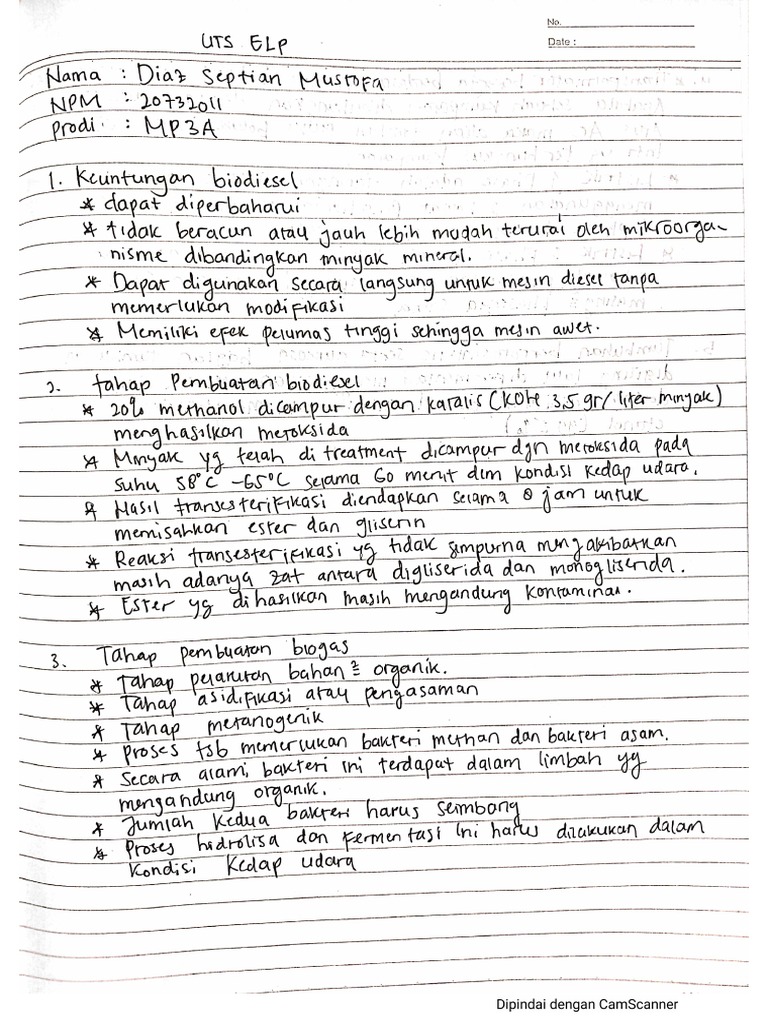 No.
Date :
UTS ELP
Nama : Diaz Septian Mustofa
NPM : 20732011
Prodi : MP3A
1. Keuntungan biodiesel
* dapat diperbaharui
* tidak beracun atau jauh lebih mudah terurai oleh mikroorga-
nisme dibandingkan minyak mineral.
* Dapat digunakan secara langsung untuk mesin diesel tanpa
memerlukan modifikasi
* Memiliki efek pelumas tinggi sehingga mesin awet.
2. tahap Pembuatan biodiesel
* 20% methanol dicampur dengan katalis (KOH 3,5 gr/liter minyak)
menghasilkan metoksida
* Minyak yg telah di treatment dicampur dgn metoksida pada
suhu 58°C -65°C selama 60 menit dlm kondisi kedap udara.
* Hasil transesterifikasi diendapkan selama 8 jam untuk
memisahkan ester dan gliserin
* Reaksi transesterifikasi yg tidak sempurna mengakibatkan
masih adanya zat antara digliserida dan monogliserida.
* Ester yg dihasilkan masih mengandung kontaminan.
3. Tahap pembuatan biogas
* Tahap pelarutan bahan² organik.
* Tahap asidifikasi atau pengasaman
* Tahap metanogenik
* Proses tsb memerlukan bakteri methan dan bakteri asam.
* Secara alami bakteri ini terdapat dalam limbah yg
mengandung organik.
* Jumlah kedua bakteri harus seimbang
* Proses hidrolisa dan fermentasi ini harus dilakukan dalam
kondisi Kedap udara
Dipindai dengan CamScanner